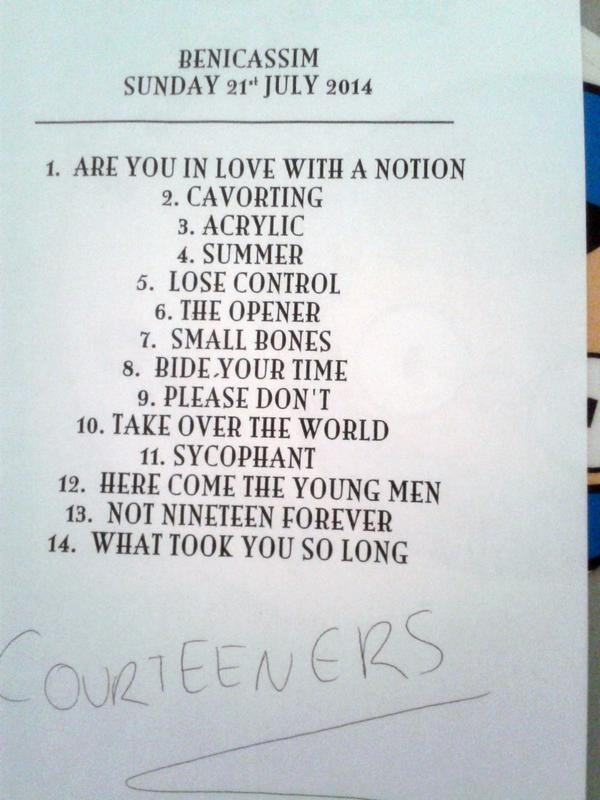 BENICASSIM
SUNDAY 21st JULY 2014
1. ARE YOU IN LOVE WITH A NOTION
2. CAVORTING
3. ACRYLIC
4. SUMMER
5. LOSE CONTROL
6. THE OPENER
7. SMALL BONES
8. BIDE YOUR TIME
9. PLEASE DON'T
10. TAKE OVER THE WORLD
11. SYCOPHANT
12. HERE COME THE YOUNG MEN
13. NOT NINETEEN FOREVER
14. WHAT TOOK YOU SO LONG
COURTEENERS